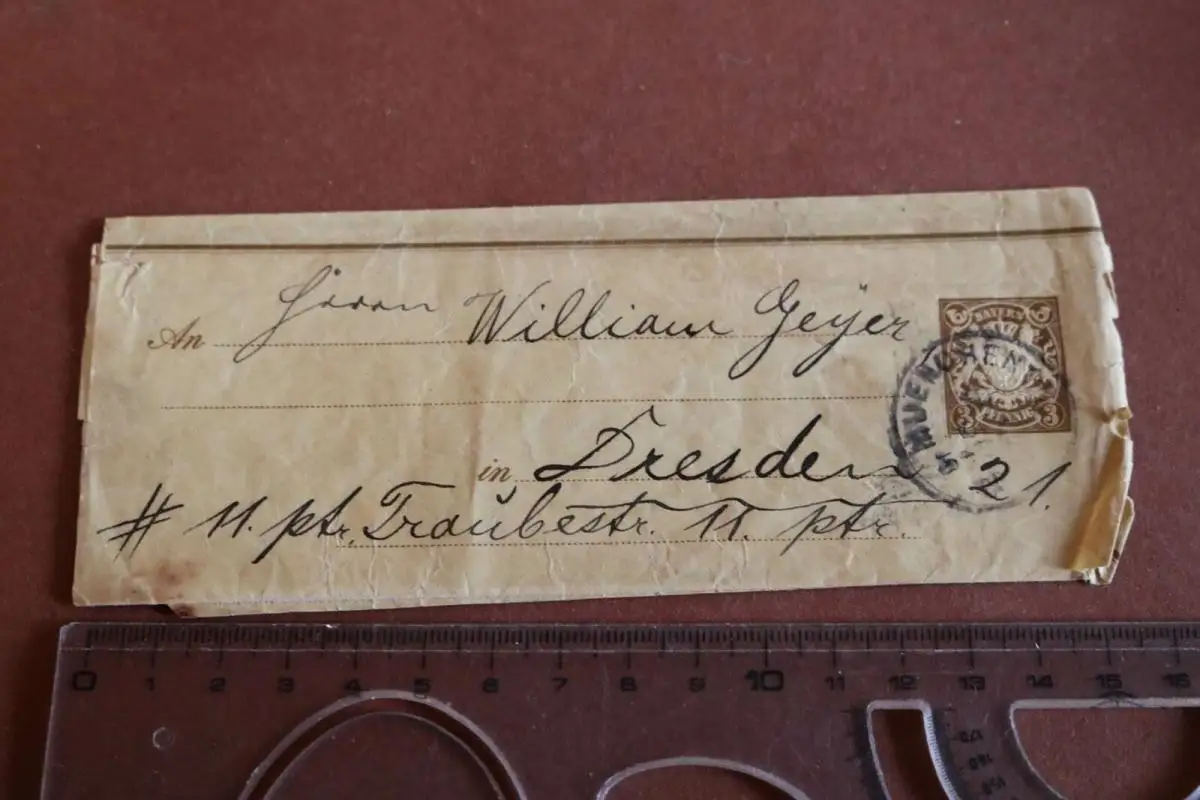 An Herrn William Geyer
in Dresden 21.
# 11. ptr. Traubestr. 11. ptr.
BAYERN
3 3
PFENNIG
MUENCHEN
0 1 2 3 4 5 6 7 8 9 10 11 12 13 14 15 16
170
160
150